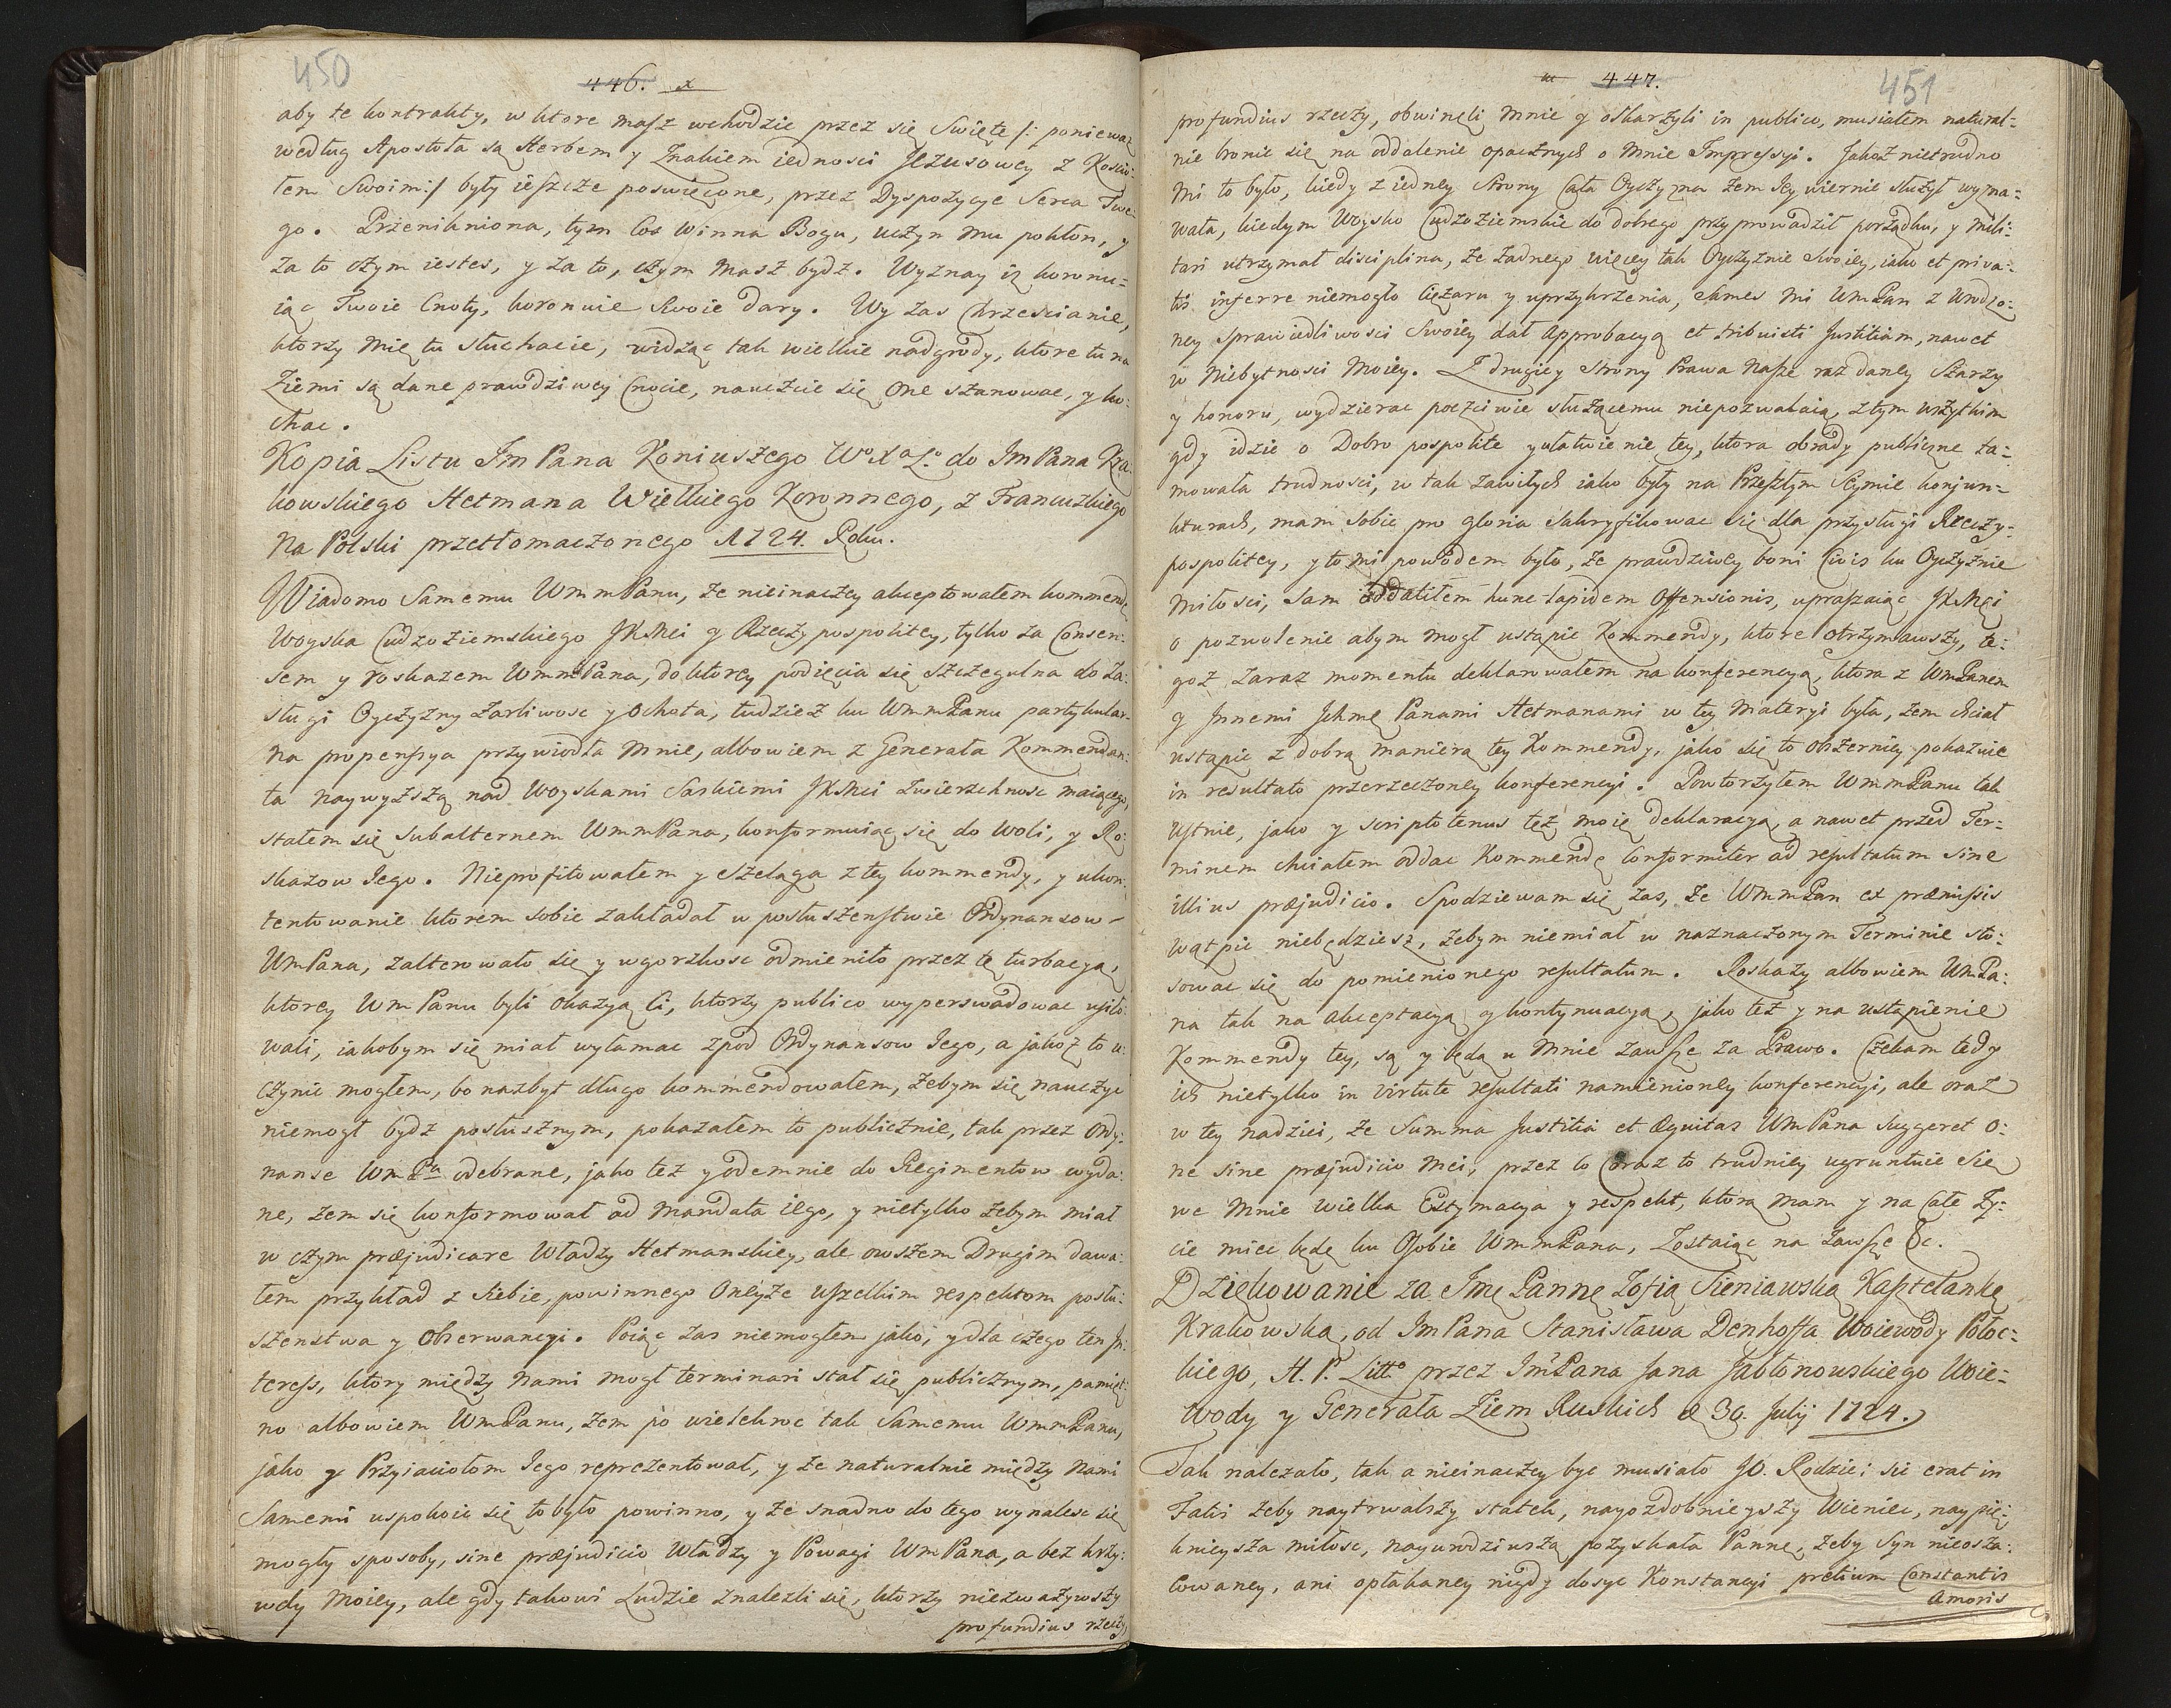 450
446. x
aby te kontrakty, w ktore masz wchodzic przez się Swięte /: poniewaz
według Apostoła są Herbem y Znakiem iednosci Jezusowey z Koscio-
łem Swoim :/ były ieszcze poswięcone, przez Dyspozycye Serca Twe-
go. Przenikniona, tym coś winna Bogu, uczyn mu pokłon, y
za to czym iestes, y za to, czym masz bydz. Wyznay iz koronu-
iąc Twoie Cnoty, koronuie Swoie dary. Wy zas Chrzescianie,
ktorzy mię tu słuchacie, widząc tak wielkie nadgrody, ktore tu na
Ziemi są dane prawdziwey Cnocie, nauczcie się one szanowac, y ko-
chac.
Kopia Listu Jm Pana Koniuszego Wo Xa Lo do Jm Pana Kra-
kowskiego Hetmana Wielkiego Koronnego, z Francuzkiego
Na Polski przetłomaczonego 1724. Roku.
Wiadomo Samemu WmmPanu, ze nieinaczey akceptowałem kommendę
Woyska Cudzoziemskiego JKMci y Rzeczypospolitey, tylko za Consen-
sem y roskazem WmmPana, do ktorey podięcia się szczegulna do za-
sługi Oyczyzny zarliwosc y ochota, tudziez ku WmmPanu partykular-
na propensya przywiodła mnie, albowiem z Generała Kommendan-
ta naywyzszą nad Woyskami Saskiemi JKMci zwierzchnosc maiącego,
stałem się Subalternem WmmPana, konformuiąc się do Woli, y Ro-
skazow Jego. Nieprofitowałem y szeląga z tey kommendy, y ukon-
tentowanie ktorem sobie zakładał w posłuszenstwie Ordynansow
WmPana, zalterowało się y w gorzkosc odmieniło przez tę turbacyą,
ktorey Wm Panu byli okazyą Ci, ktorzy publico wyperswadowac usiło-
wali, iakobym się miał wyłamac zpod Ordynansow Jego, a jakoz to u-
czynic mogłem, bo nazbyt długo kommendowałem, zebym się nauczyc
niemogł bydz posłusznym, pokazałem to publicznie, tak przez Ordy-
nanse Wm Pa odebrane, jako tez y odemnie do Regimentow wyda-
ne, zem się konformował ad mandata iego, y nietylko zebym miał
w czym præjudicare Władzy Hetmanskiey, ale owszem Drugim dawa-
łem przykład z Siebie, powinnego Oneyze wszelkim respektom posłu-
szenstwa y Obserwancyi. Poiąc zas niemogłem jako, y dla czego ten In-
teress, ktory między Nami mogł terminari stał się publicznym, pamięt-
no albowiem WmPanu, zem po wielekroc tak Samemu WmmPanu,
jako y Przyiaciołom Jego reprezentował, y ze naturalnie między Nami
Samemi uspokoic się to było powinno, y ze snadno do tego wynalesc się
mogły sposoby, sine præjudicio Władzy y Powagi WmPana, a bez krzy-
wdy Moiey, ale gdy takowi Ludzie znalezli się, ktorzy niezwazywszy
profundius rzeczy
447.
451
profundius rzeczy, obwinęli mnie y oskarzyli in publico, musiałem natural-
nie bronic się na oddalenie opacznych o Mnie Impressyi. Jakoz nietrudno
Mi to było, kiedy z iedney Strony Cała Oyczyzna zem Jey wiernie słuzył wyzna-
wała, kiedym Woysko Cudzoziemskie do dobrego przyprowadził porządku, y Mili-
tari utrzymał disciplina, ze zadnego więcey tak Oyczyznie Swoiey, iako et priva-
tis inferre niemogło Ciężaru y uprzykrzenia, Sames Mi WmPan z Wrodzo-
ney Sprawiedliwosci Swoiey dał Approbacyą et tribuisti Justitiam, nawet
w Niebytnosci Moiey. Z drugiey Strony Prawa Nasze raz daney Szarzy
y honoru, wydzierac poczciwie słuzącemu niepozwalaią, z tym wszytkim
gdy idzie o Dobro pospolite y ułatwienie tey, ktora obrady publiczne ta-
mowała trudnosci, w tak zawiłych iako były na Przeszłym Seymie konjun-
kturach, mam sobie pro gloria Sakryfikowac się dla przysługi Rzeczy-
pospolitey, y to mi powodem było, ze prawdziwey boni Civis ku Oyczyznie
Miłosci, Sam oddaliłem hunc lapidem Offensionis, upraszaiąc JKMci
o pozwolenie abym mogł ustąpic Kommendy, ktore otrzymawszy, te-
goz zaraz momentu deklarowałem na konferencyą, ktora z WmPanem
y Innemi Jchmć Panami Hetmanami w tey Materyi była, zem chciał
ustąpic z dobrą manierą tey Kommendy, jako się to obszerniey pokazuie
in resultato przerzeczoney konferencyi. Powtorzyłem WmmPanu tak
Ustnie, jako y scripto tenus tęz moię deklaracyą, a nawet przed Ter-
minem chciałem oddac Kommendę Conformiter ad resultatum sine
illius præjudicio. Spodziewam się zas, ze WmmPan ex præmissis
wątpic niebędziesz, zebym niemiał w naznaczonym Terminie sto-
sowac się do pomienionego resultatum. Roskazy albowiem WmPa-
na tak na akceptacyą y kontynuacyą, jako tez y na ustąpienie
Kommendy tey, są y będą u Mnie zawsze za Prawo. Czekam tedy
ich nietylko in virtute resultati namienioney konferencyi, ale oraz
w tey nadziei, ze Summa Justitia et Æquitas WmPana suggeret o-
ne sine præjudicio Mei, przez co Coraz to trudniey ugruntuie się
we Mnie wielka Estymacya y respekt, ktorą mam y na Całe Zy-
cie miec będę ku Osobie WmmPana, Zostaiąc na zawsze &c.
Dziękowanie za Jmć Pannę Zofią Sieniawską Kasztelankę
Krakowską, od Jm Pana Stanisława Denhoffa Woiewody Połoc-
kiego, H. P. Litto przez Jm Pana Jana Jabłonowskiego Woie-
wody y Generała Ziem Ruskich d 30. Julij 1724.
Tak nalezało, tak a nieinaczey byc musiało JO. Rodzice: sic erat in
Fatis zeby naytrwalszy statek, nayozdobnieyszy Wieniec, naypię-
knieysza miłosc, nayurodziwszą pozyskała Pannę, zeby Syn nieosza-
cowaney, ani opłakaney nigdy dosyc Konstancyi pretium Constantis
Amoris